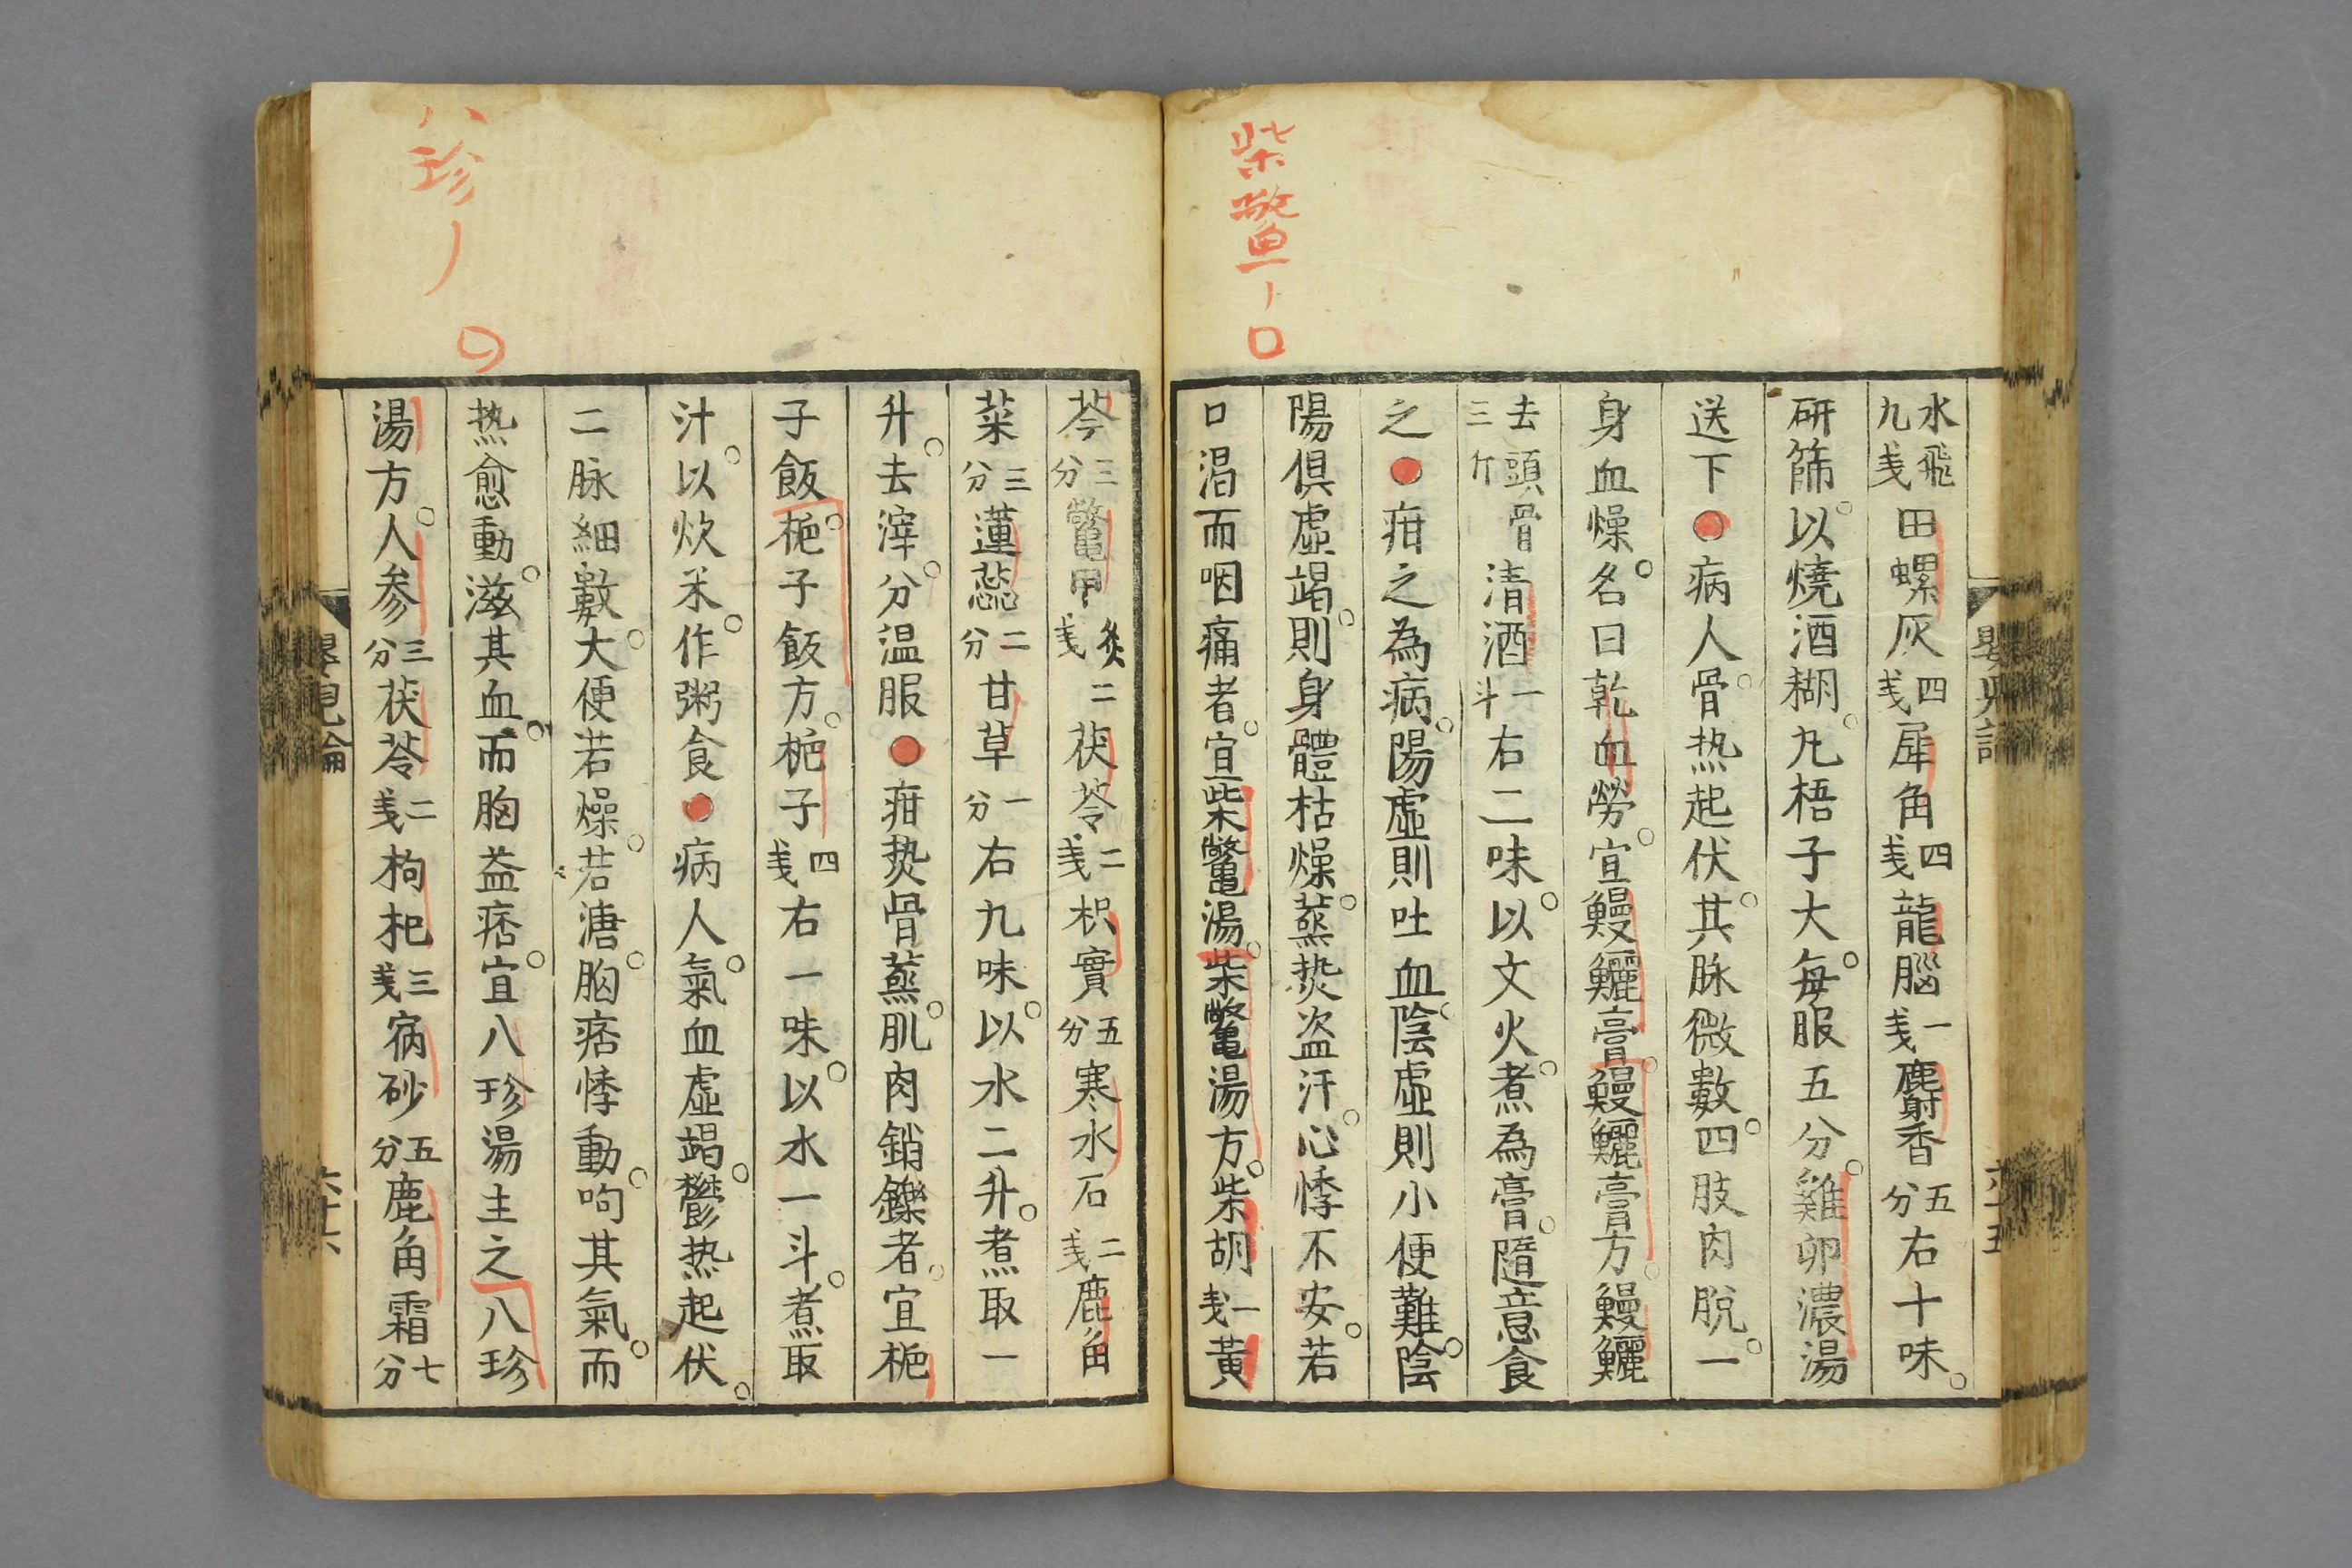 柴鱉ノ口
水飛九戔田螺灰四戔犀角四戔龍腦一戔麝香五分右十味。
研篩。以燒酒糊。丸梧子大。每服五分。雞卵濃湯
送下●病人骨。热起伏。其脉微數。四肢肉脫。一
身血燥。名曰乾血勞。宜鰻鱺膏。鰻鱺膏方。鰻鱺
去頭骨三斤清酒一斗右二味。以文火。煮為膏。隨意食
之●疳之為病。陽虛則吐血。陰虛則小便難。陰
陽俱虛竭。則身體枯燥。蒸热盗汗。心悸不安。若
口渴而咽痛者。宜柴鱉湯。柴鱉湯方。柴胡一戔黃
六十五
八珍ノ
芩三分鱉甲炙二戔茯苓二戔枳實五分寒水石二戔鹿角
菜三分蓮蕊二分甘草一分右九味。以水二升。煮取一
升。去滓。分温服●疳热骨蒸。肌肉銷鑠者。宜梔
子飯。梔子飯方。梔子四戔右一味。以水一斗。煮取
汁。以炊米。作粥食●病人氣。血虛竭。鬱热起伏。
二脉細數。大便若燥。若溏。胸痞悸動。呴其氣。而
热愈動。滋其血。而胸益痞。宜八珍湯主之八珍
湯方。人參三分茯苓二戔枸杞三戔宿砂五分鹿角霜七分
嬰兒論
六十六